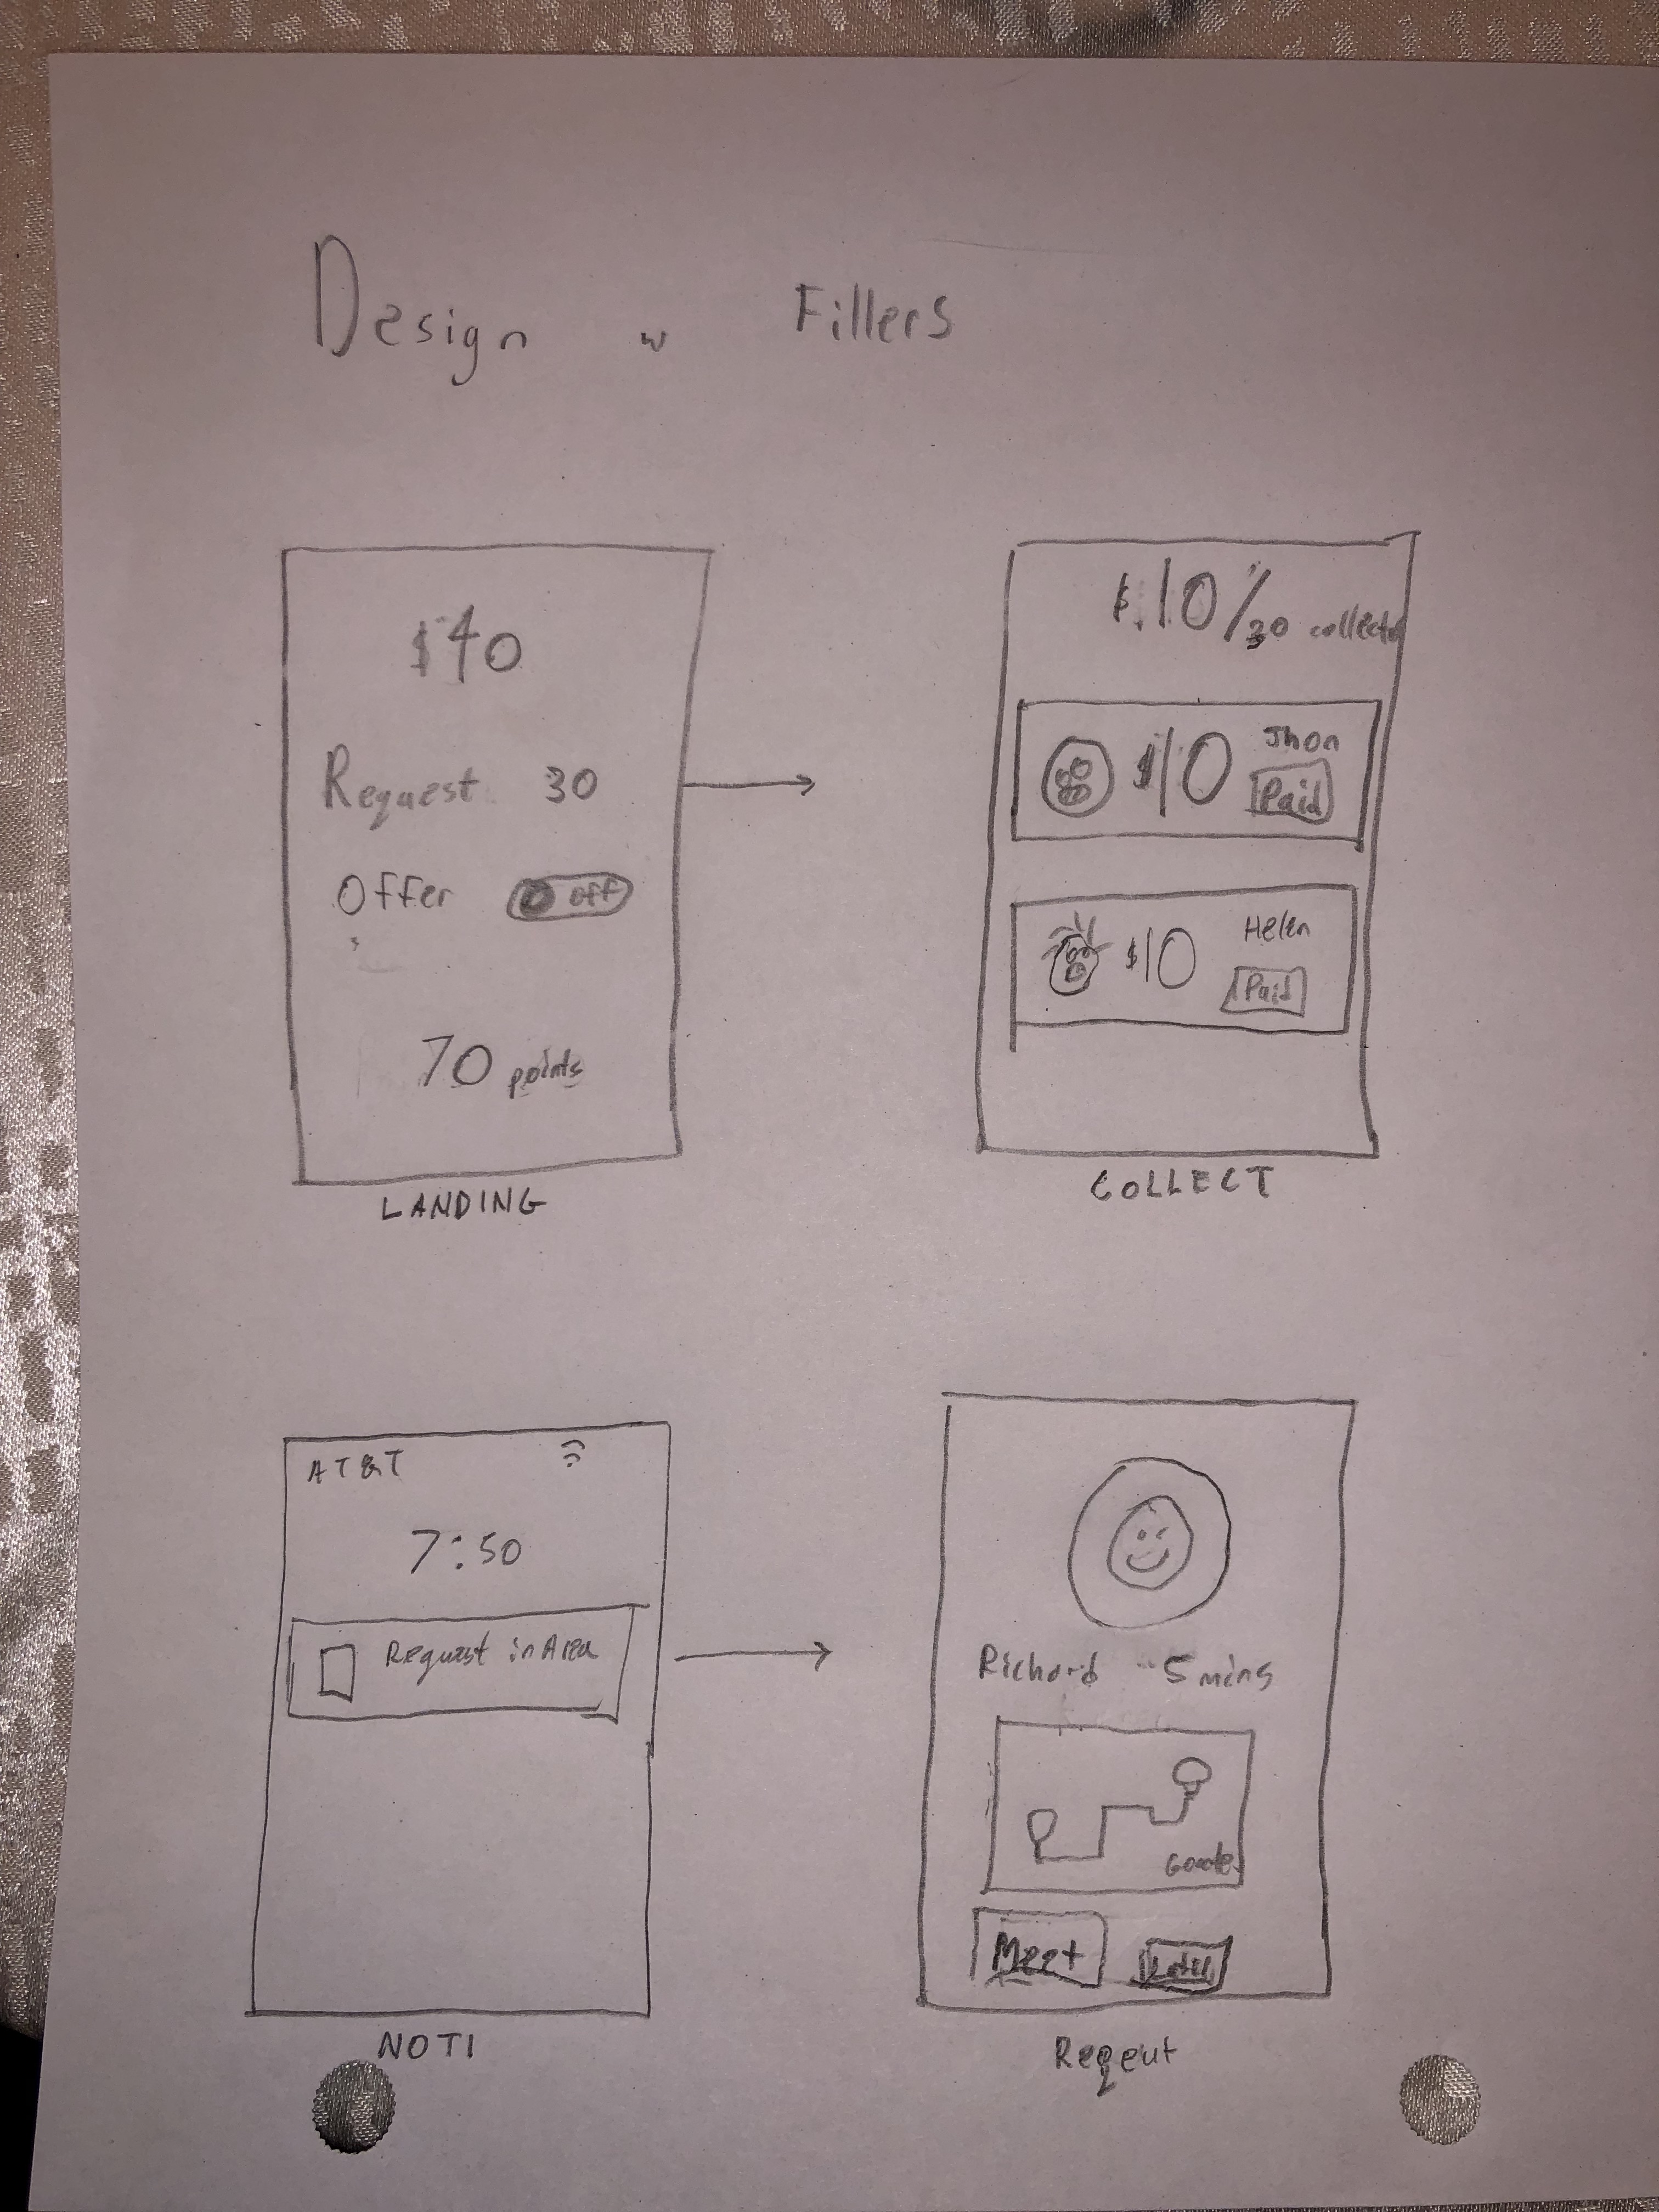 Design w Fillers
$40
Request 30
Offer off
70 points
LANDING
$10/30 collected
$10 Jhon
Paid
$10 Helen
Paid
COLLECT
AT&T
7:50
Request in Area
NOTI
Richard 5 mins
Meet
Reqeut